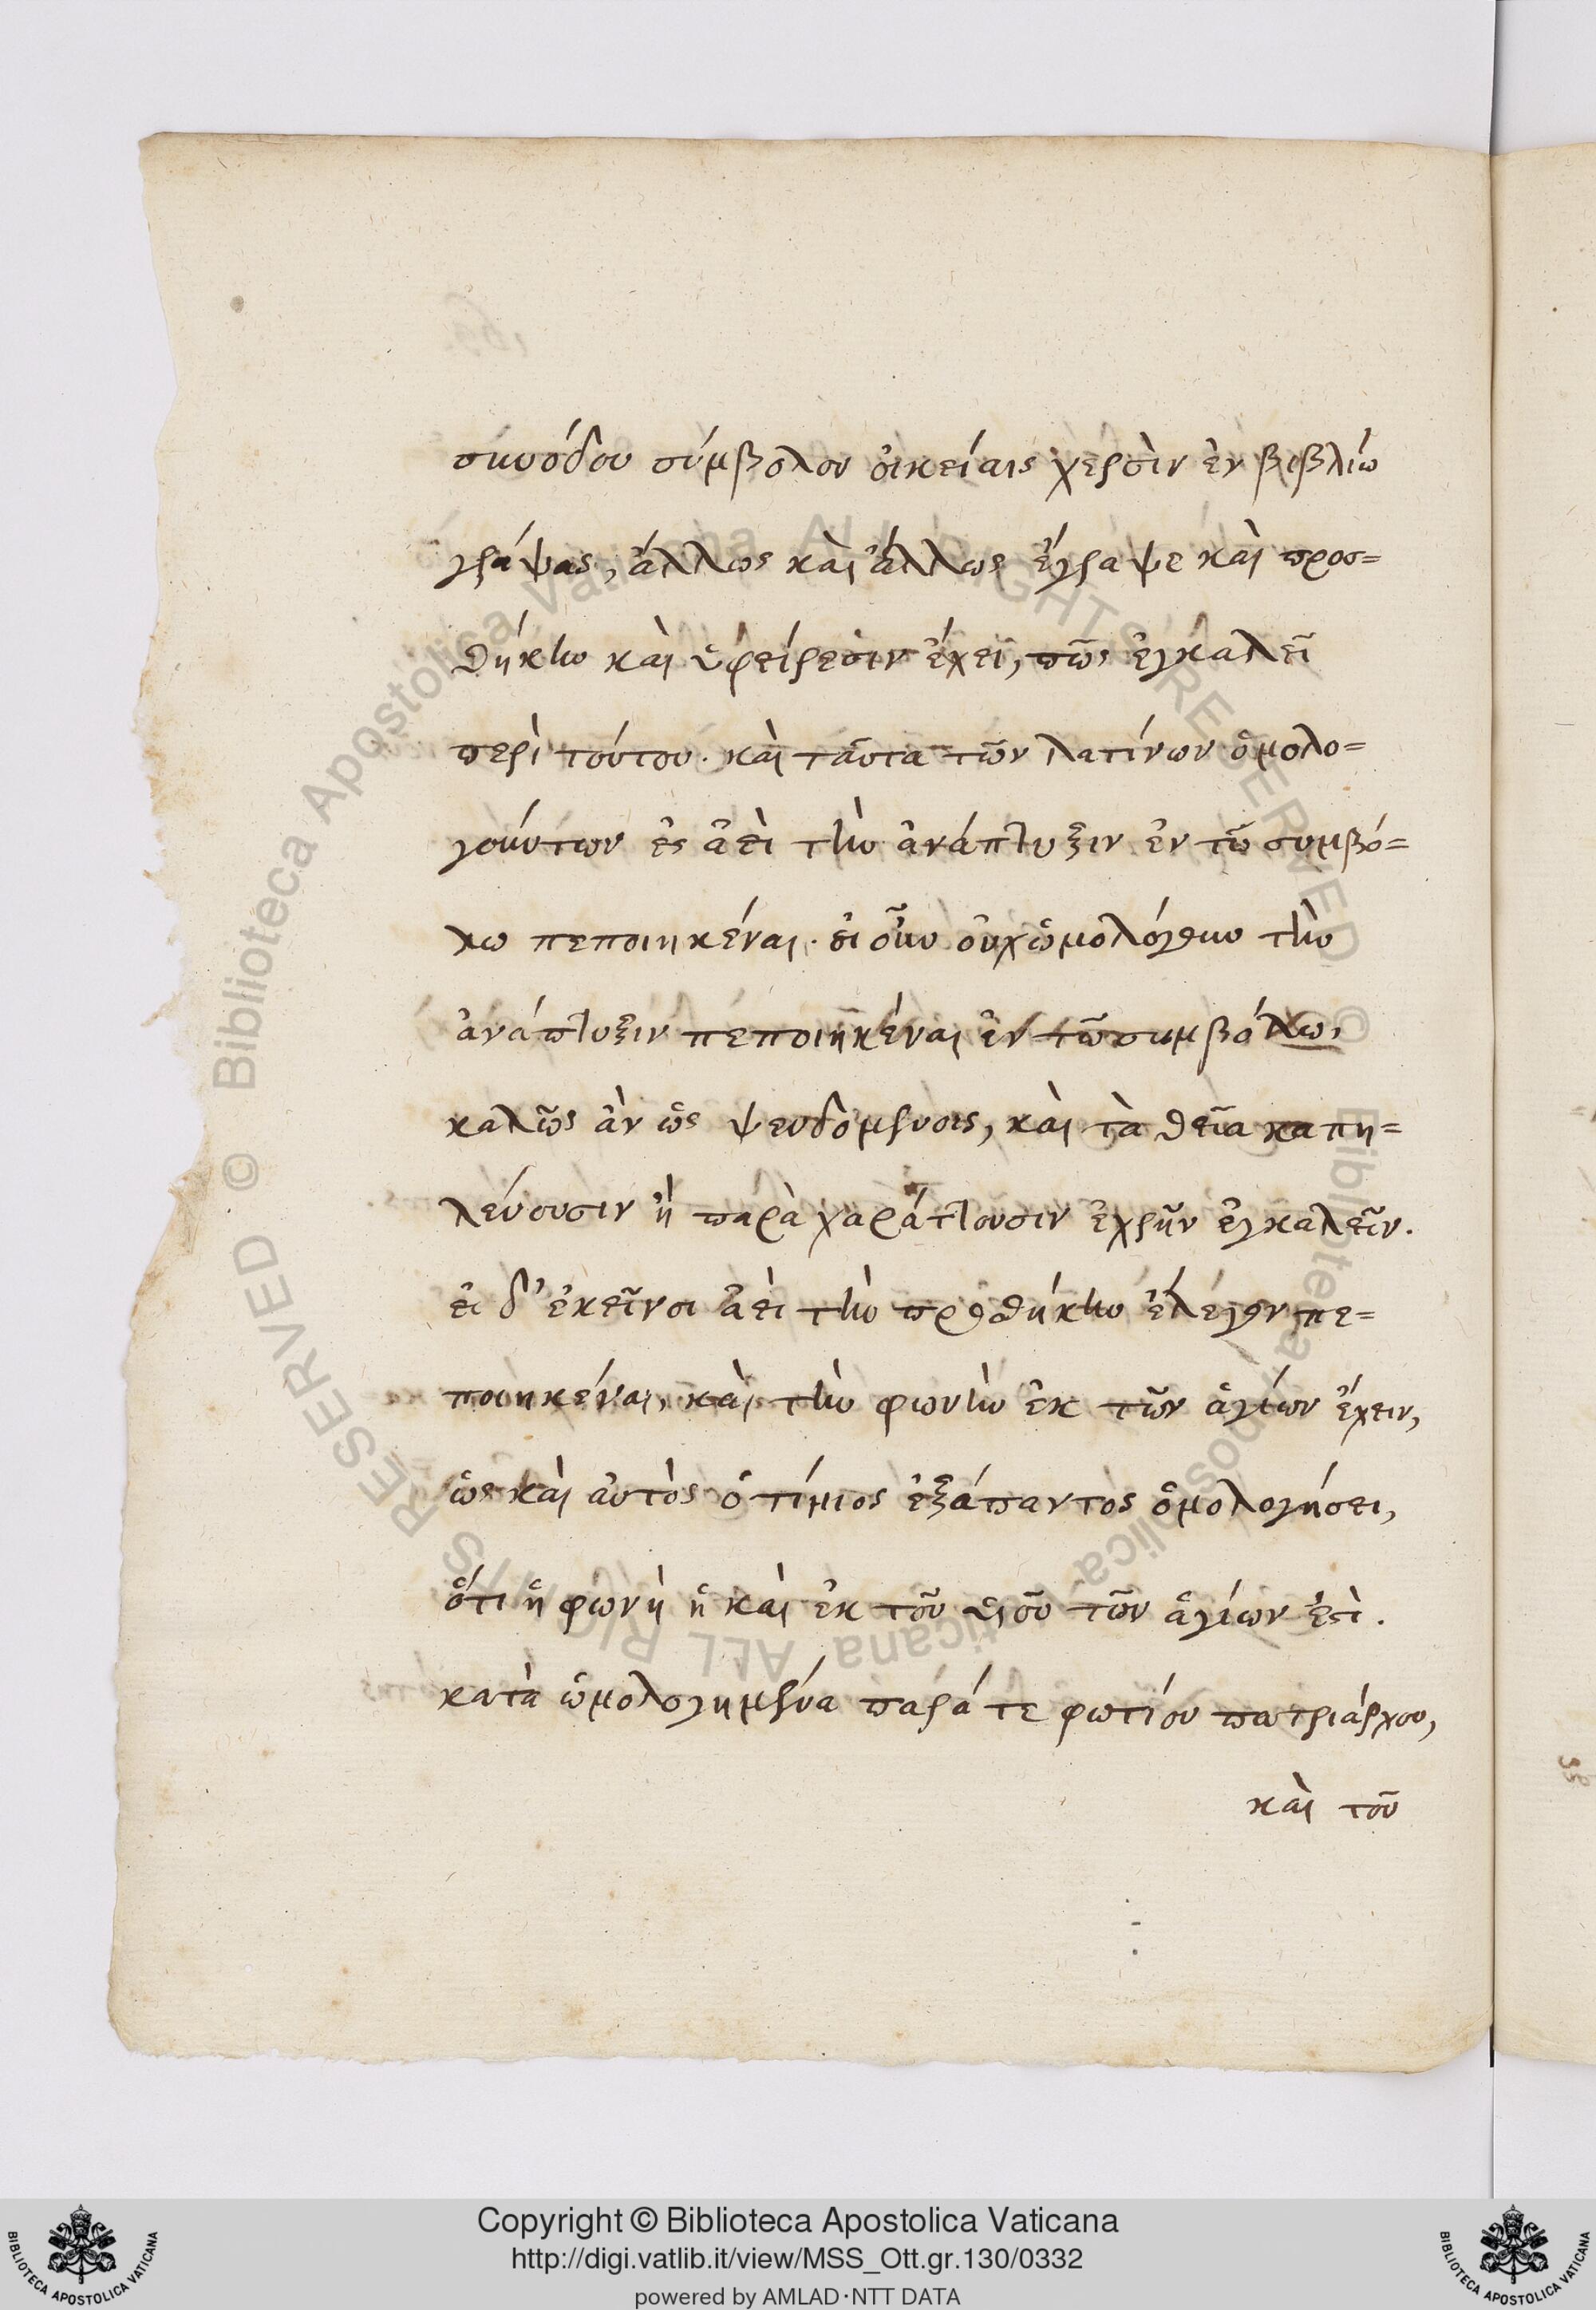 συνόδου σύμβολον οἰκείαις χερσὶν ἐν βιβλίω
γράψας, ἄλλως καὶ ἄλλως ἔγραψε καὶ προσ=
θήκην καὶ ὑφείρεσιν ἔχει, πῶς ἐγκαλεῖ
περὶ τούτου. καὶ ταῦτα τῶν λατίνων ὁμολο=
γούντων ἐς ἀεὶ τὴν ἀνάπτυξιν ἐν τῶ συμβό=
λω πεποιηκέναι. εἰ οὖν οὐχ ὡμολόγουν τὴν
ἀνάπτυξιν πεποιηκέναι ἐν τῶ συμβόλω,
καλῶς ἂν ὡς ψευδομένοις, καὶ τὰ θεῖα καπη=
λεύουσιν ἢ παραχαράττουσιν ἐχρῆν ἐγκαλεῖν.
εἰ δ' ἐκεῖνοι ἀεὶ τὴν προσθήκην ἔλεγον πε=
ποιηκέναι, καὶ τὴν φωνὴν ἐκ τῶν ἁγίων ἔχειν,
ὡς καὶ αὐτὸς ὁ τίμιος ἐξάπαντος ὁμολογήσει,
ὅτι ἡ φωνὴ ἡ καὶ ἐκ τοῦ υἱοῦ τῶν ἁγίων ἐστὶ.
κατὰ ὡμολογημένα παρά τε φωτίου πατριάρχου,
καὶ τοῦ
Biblioteca Apostolica Vaticana ALL RIGHTS RESERVED ©
Biblioteca Apostolica Vaticana ALL RIGHTS RESERVED ©
Copyright © Biblioteca Apostolica Vaticana
http://digi.vatlib.it/view/MSS_Ott.gr.130/0332
powered by AMLAD·NTT DATA
BIBLIOTECA APOSTOLICA VATICANA
BIBLIOTECA APOSTOLICA VATICANA